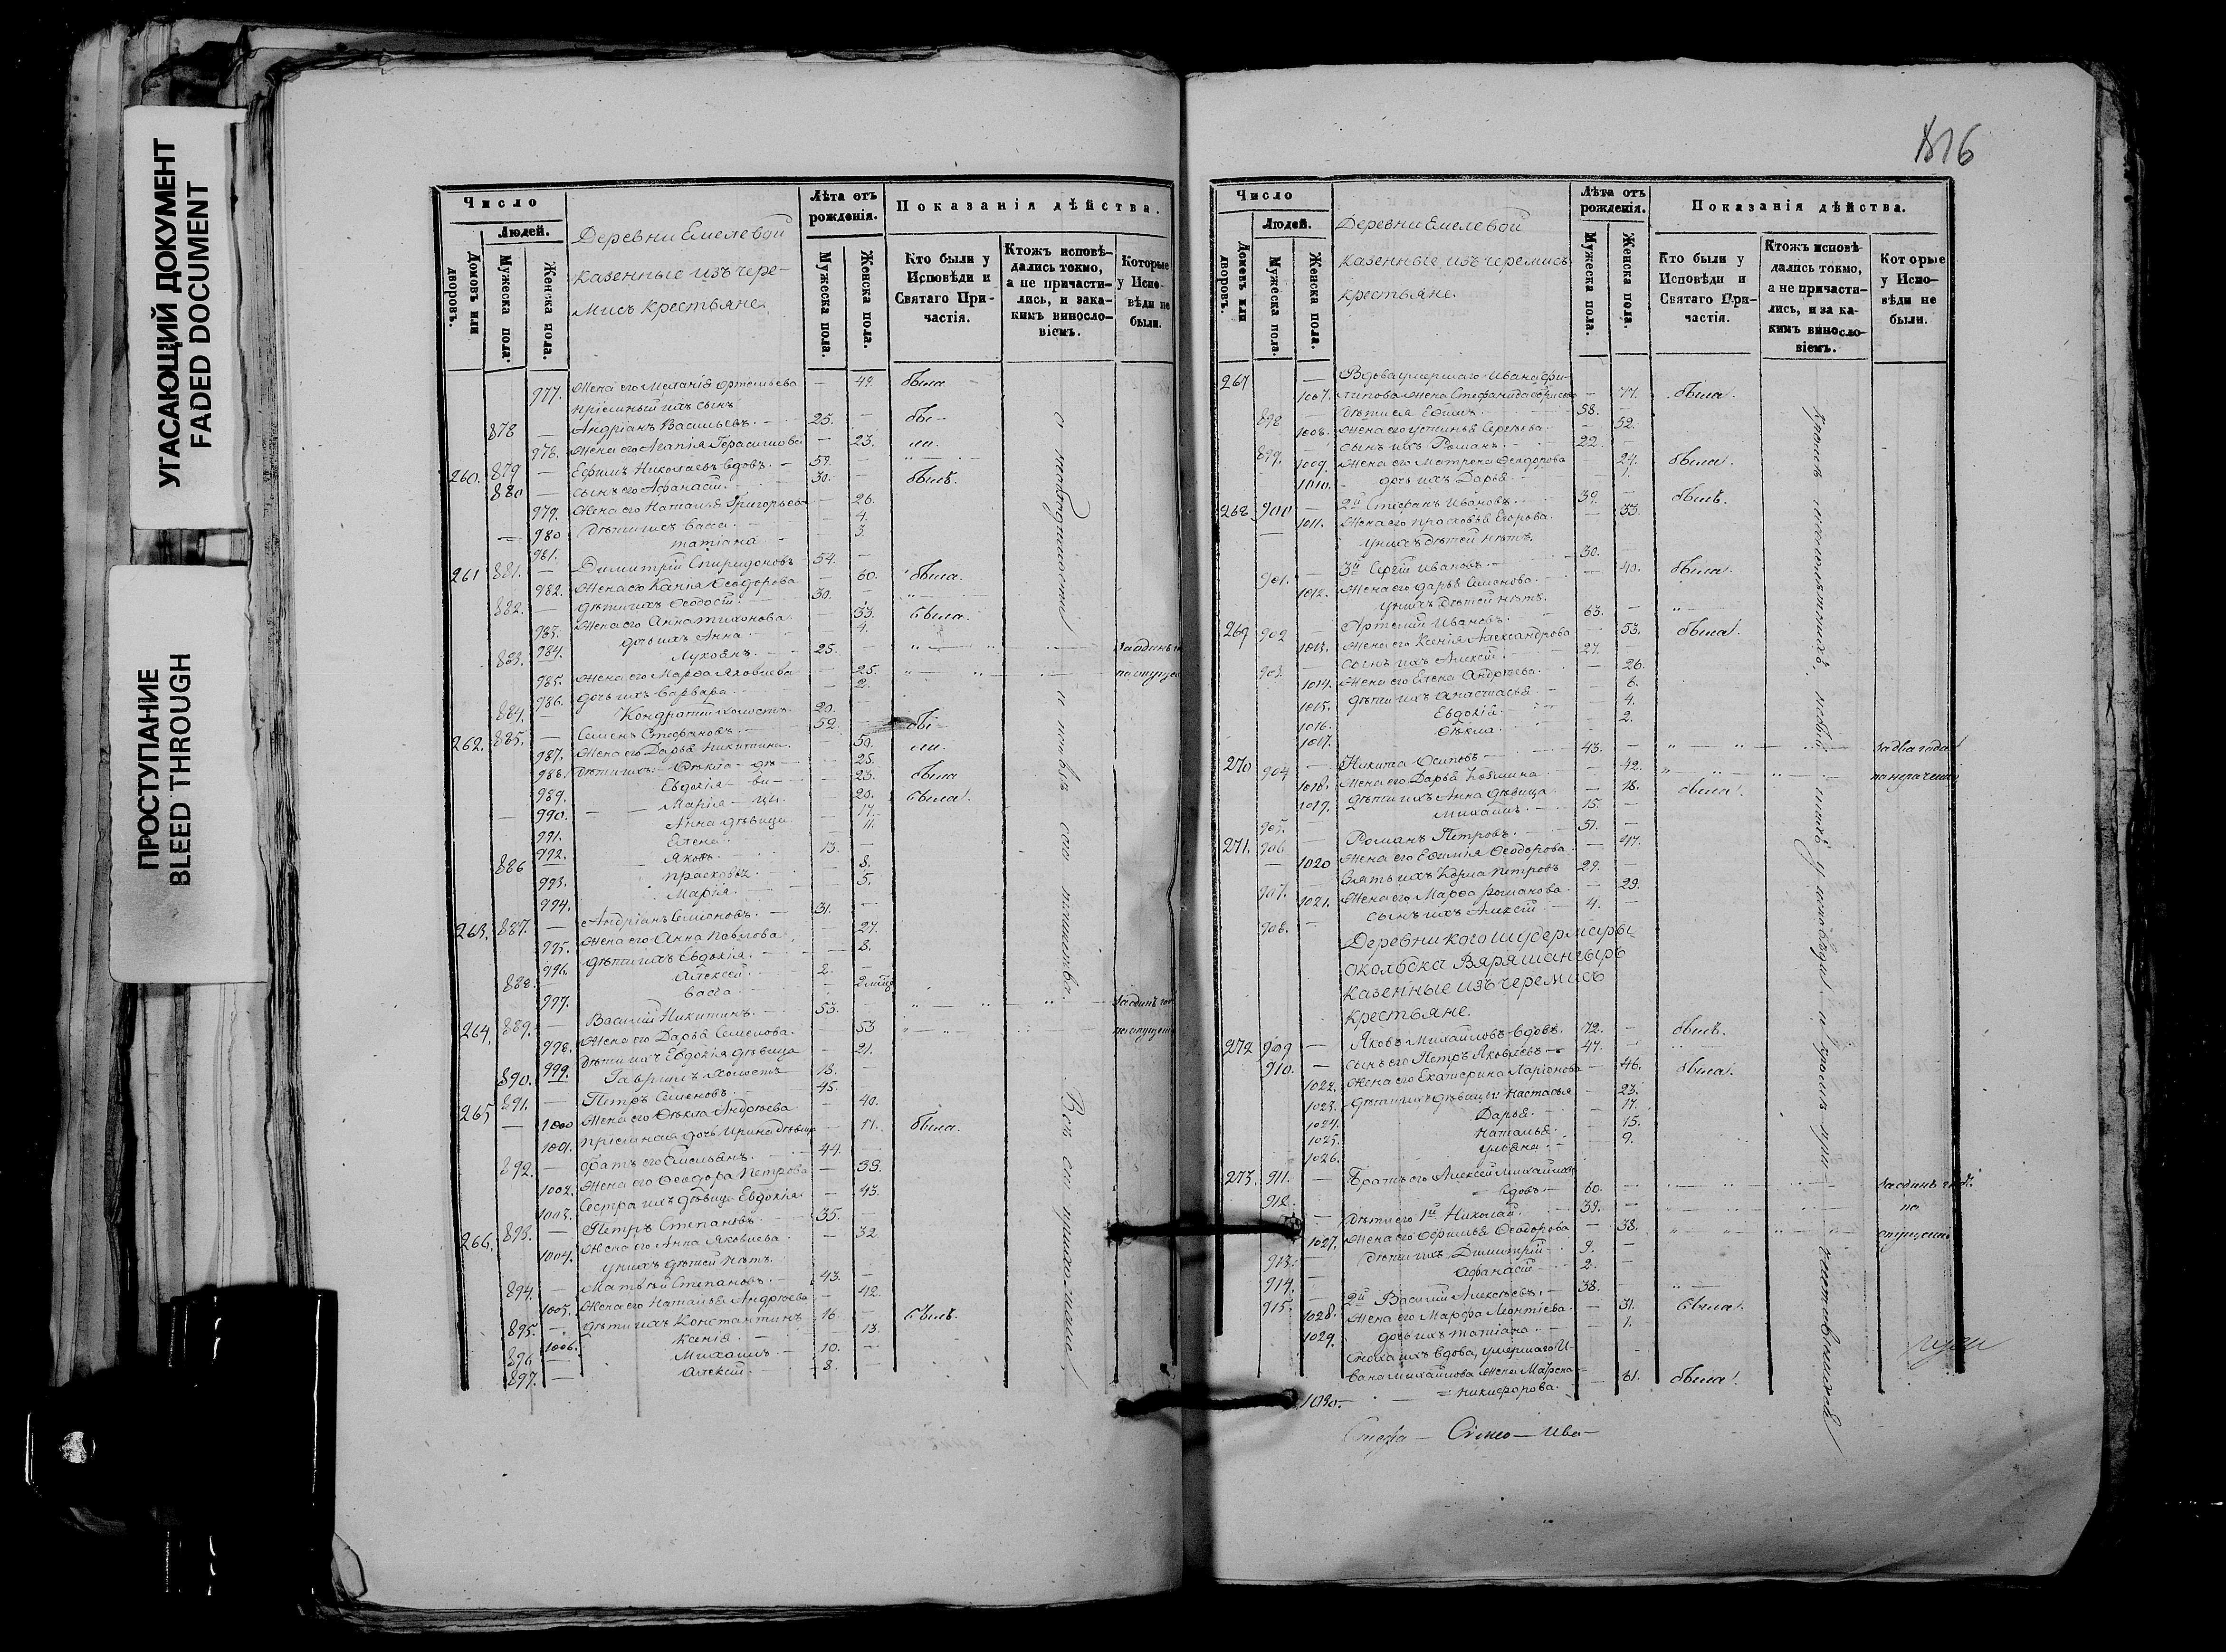 УГАСАЮЩИЙ ДОКУМЕНТ
FADED DOCUMENT
ПРОСТУПАНИЕ
BLEED THROUGH
Число
Людей.
Домовъ или дворовъ.
Мужеска пола.
Женска пола.
Деревни Емелевой
казенные изъ чере-
мисъ крестьяне.
Лѣта отъ рожденія.
Мужеска пола.
Женска пола.
Показанія дѣйства.
Кто были у Исповѣди и Святаго Причастія.
Ктожъ исповѣдались токмо, а не причастились, и закакимъ винословіемъ.
Которые у Исповѣди не были.
977. Жена его Меланія Артемьева — 49. была
пріемный ихъ сынъ
878 — Андріанъ Васильевъ. 25. — бы-
978. Жена его Агапія Герасимова — 23. ли.
260. 879 — Ефимъ Николаевъ вдовъ. 59. —
880 — сынъ его Афанасій. 30. — былъ.
979. Жена его Наталья Григорьева — 26.
980 дѣти ихъ Васса. — 4.
981. Татіана — 3.
261 881. — Димитрій Спиридоновъ 54. —
982. Жена его Ксенія Ѳеодорова — 60. была.
882. — дѣти ихъ Ѳеодосій. 30. —
983. Жена его Анна Тихонова — 33. была.
984. дочь ихъ Анна — 4.
883. — Лукоянъ. 25. — за однимъ
985. Жена его Марѳа Яковлева — 25. по опущен
986. дочь ихъ Варвара. — 2.
884. — Кондратій холостъ 20. —
262. 885. — Семенъ Стефановъ. 52. — бы-
987. Жена его Дарья Никитина. — 50. ли.
988. дѣти ихъ: Ѳекла — дѣ- — 25.
989. Евдокія — ви- — 23. была
990. Марія — цы. — 20. была.
991. Анна дѣвица — 17.
992. Елена. — 11.
886 — Яковъ. 13. —
993. Прасковья. — 8.
994. Марія. — 5.
263. 887. — Андріанъ Семеновъ. 31. —
995. Жена его Анна Павлова — 27.
996. дѣти ихъ Евдокія. — 8.
888. — Алексѣй. 2. —
997. Васса.
264. 889. — Василій Никитинъ. 53. — за однимъ
998. Жена его Дарья Семенова. — 53 по опущен
999. дѣти ихъ Евдокія дѣвица — 21.
890. — Гавріилъ холостъ 18. —
265 891. — Петръ Семеновъ 45. —
1000 Жена его Ѳекла Андреева — 40.
1001. пріемная дочь Ирина дѣвица — 17. была.
892. — братъ его Емельянъ. 44. —
1002. Жена его Ѳеодора Петрова — 39.
1003. Сестра ихъ дѣвица Евдокія — 43.
266. 893. — Петръ Степановъ. 35. —
1004. Жена его Анна Яковлева — 32
у нихъ дѣтей нѣтъ.
894. — Матвѣй Степановъ. 43. —
1005. Жена его Наталья Андреева — 42.
895. — дѣти ихъ Константинъ 16 — былъ.
1006. Ксенія. — 13.
896. — Михаилъ. 10. —
897. — Алексѣй. 8. —
816
Число
Людей.
Домовъ или дворовъ.
Мужеска пола.
Женска пола.
Деревни Емелевой
казенные изъ черемисъ
крестьяне.
Лѣта отъ рожденія.
Мужеска пола.
Женска пола.
Показанія дѣйства.
Кто были у Исповѣди и Святаго Причастія.
Ктожъ исповѣдались токмо, а не причастились, и за какимъ винословіемъ.
Которые у Исповѣди не были.
267 — Вдова умершаго Ивана Фи-
1007. липова жена Стефанида — 77. была.
898 — дѣти ея Ефимъ. 58. —
1008. Жена его Устинья Сергѣева. — 52.
899. — сынъ ихъ Романъ. 22. —
1009. Жена его Матрена Ѳеодорова — 24. была.
1010. дочь ихъ Дарья — 1.
268 900 — 2й Стефанъ Ивановъ. 39. — былъ.
1011. Жена его Прасковья Егорова. — 33.
у нихъ дѣтей нѣтъ.
901. — 3й Сергѣй Ивановъ. 30. —
1012. Жена его Дарья Семенова. — 40. была.
у нихъ дѣтей нѣтъ.
269 902 — Артемій Ивановъ. 63. —
1013. Жена его Ксенія Александрова — 53. была.
903. — сынъ ихъ Алексѣй. 27. —
1014. Жена его Елена Андреева. — 26.
1015. дѣти ихъ Анастасья — 6.
1016. Евдокія — 4.
1017. Ѳекла. — 2.
270 904 — Никита Осиповъ 43. — за два года
1018. Жена его Дарья Козмина — 42. по нераченію
1019. дѣти ихъ Анна дѣвица — 18. была.
905. — Михаилъ. 15. —
271. 906 — Романъ Петровъ. 51. —
1020 Жена его Евѳимія Ѳеодорова — 47.
907. — Зять ихъ Козма Петровъ 29. —
1021. Жена его Марѳа Романова. — 29.
908. — сынъ ихъ Алексѣй 4. —
Деревни Когошудермары
околодка Вярашангыръ
казенные изъ черемисъ
крестьяне.
272 909 — Яковъ Михайловъ вдовъ. 72. — былъ.
910. — Сынъ его Петръ Яковлевъ 47. —
1022. Жена его Екатерина Ларіонова — 46. была.
1023. дѣти ихъ дѣвицы: Настасья — 23.
1024. Дарья. — 17.
1025. Наталья. — 15.
1026. Ульяна. — 9.
273. 911. — Братъ его Алексѣй Михайловъ
вдовъ. 60. — за однимъ
912. — дѣти его 1й Николай. 39. — по
1027. Жена его Ѳофимья Ѳеодорова — 38. опущенію
913. — дѣти ихъ Димитрій 9. —
914. — Афанасій 2. —
915. — 2й Василій Алексѣевъ. 38. —
1028. Жена его Марфа Леонтіева. — 31. была.
1029. дочь ихъ Татіана. — 1.
Сноха ихъ вдова, умершаго И-
вана Михайлова жена Матрена
1030. Никифорова. — 61. была.